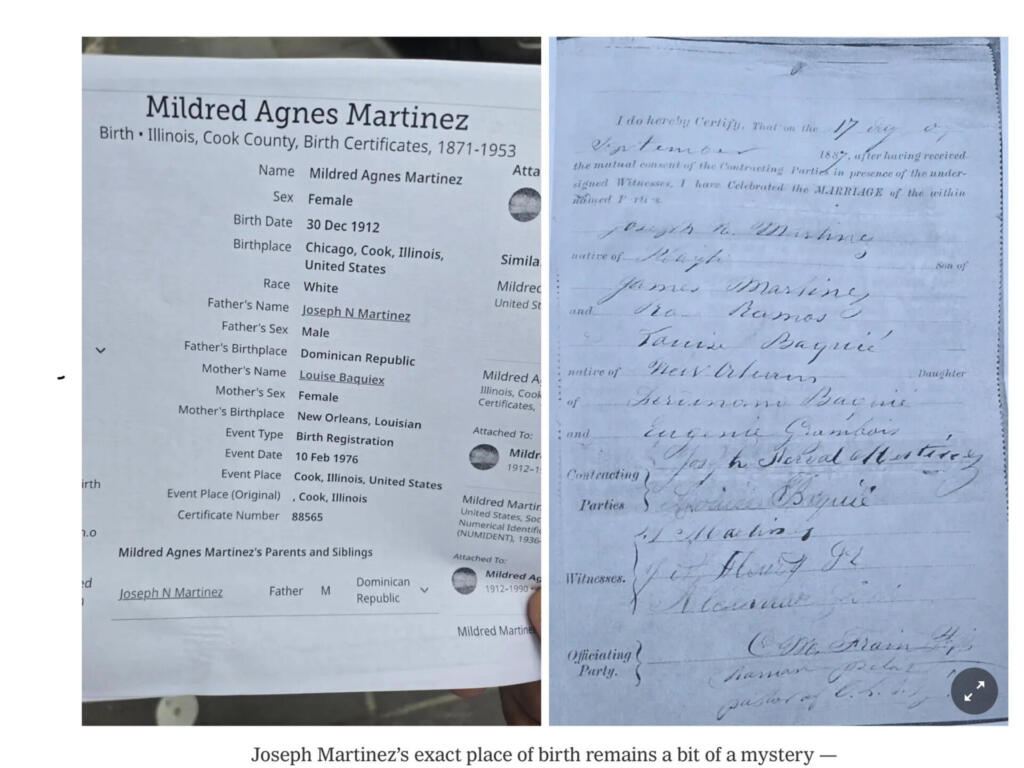 Mildred Agnes Martinez
Birth • Illinois, Cook County, Birth Certificates, 1871-1953
Name Mildred Agnes Martinez
Sex Female
Birth Date 30 Dec 1912
Birthplace Chicago, Cook, Illinois,
United States
Race White
Father's Name Joseph N Martinez
Father's Sex Male
Father's Birthplace Dominican Republic
Mother's Name Louise Baquiex
Mother's Sex Female
Mother's Birthplace New Orleans, Louisian
Event Type Birth Registration
Event Date 10 Feb 1976
Event Place Cook, Illinois, United States
Event Place (Original) , Cook, Illinois
Certificate Number 88565
Mildred Agnes Martinez's Parents and Siblings
Joseph N Martinez Father M Dominican
Republic
Atta
Simila
Mildred
United St
Mildred A
Illinois, Cook
Certificates,
Attached To:
Mildr
1912-1
Mildred Martin
United States, Soc
Numerical Identific
(NUMIDENT), 1936-
Attached To:
Mildred Ag
1912-1990
Mildred Martine
I do hereby Certify, That on the 17 day of
September 1887, after having received
the mutual consent of the Contracting Parties in presence of the under-
signed Witnesses, I have Celebrated the MARRIAGE of the within
named Parties
Joseph N. Martinez
native of Hayti Son of
James Martinez
and Ramos
Louise Baquié
native of New Orleans Daughter
of Baquié
and Eugenie Grambois
Contracting Joseph Martinez
Parties Louise Baquié
Martinez
Witnesses.
Officiating
Party.
pastor of
Joseph Martinez's exact place of birth remains a bit of a mystery —